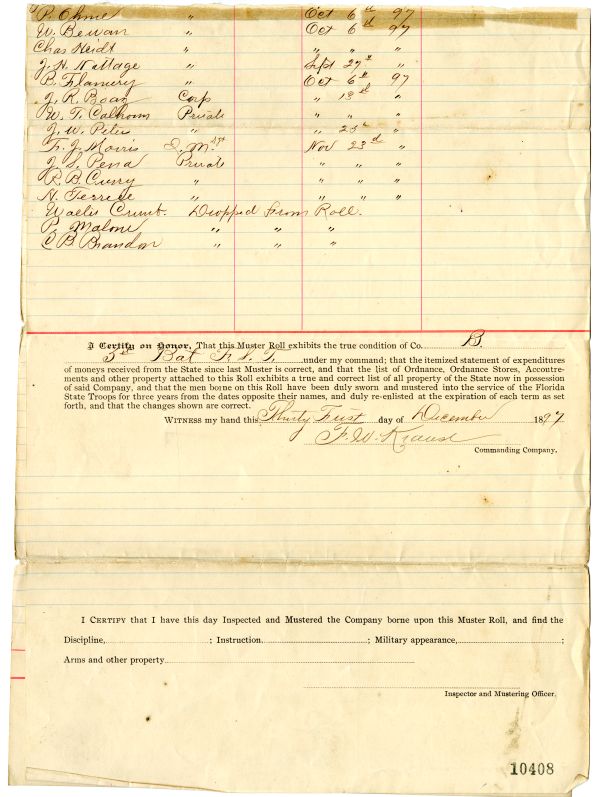 P. Ohme " Oct 6th 97
W. Bewan " Oct 6th 97
Chas Heidt " " " "
J. H. Nattage " Sept 27th "
B. Flamery " Oct 6th 97
J. R. Boaz Corp " 13th "
W. T. Calhoun Private " " "
J. W. Peter " " 23d "
F. J. Morris Q. M. Sgt Nov 23rd "
J. S. Pena Private " " "
R. B. Curry " " " "
A. Ferrese " " " "
Walter Crumt. Dropped from Roll.
P. Malone " " "
C B. Brandon " " "
I Certify on Honor, That this Muster Roll exhibits the true condition of Co. B.
5th Bat F. S. T. under my command; that the itemized statement of expenditures
of moneys received from the State since last Muster is correct, and that the list of Ordnance, Ordnance Stores, Accoutre-
ments and other property attached to this Roll exhibits a true and correct list of all property of the State now in possession
of said Company, and that the men borne on this Roll have been duly sworn and mustered into the service of the Florida
State Troops for three years from the dates opposite their names, and duly re-enlisted at the expiration of each term as set
forth, and that the changes shown are correct.
Witness my hand this Thirty First day of December 1897
F. W. Krause
Commanding Company.
I Certify that I have this day Inspected and Mustered the Company borne upon this Muster Roll, and find the
Discipline, ; Instruction ; Military appearance, ;
Arms and other property
Inspector and Mustering Officer.
10408